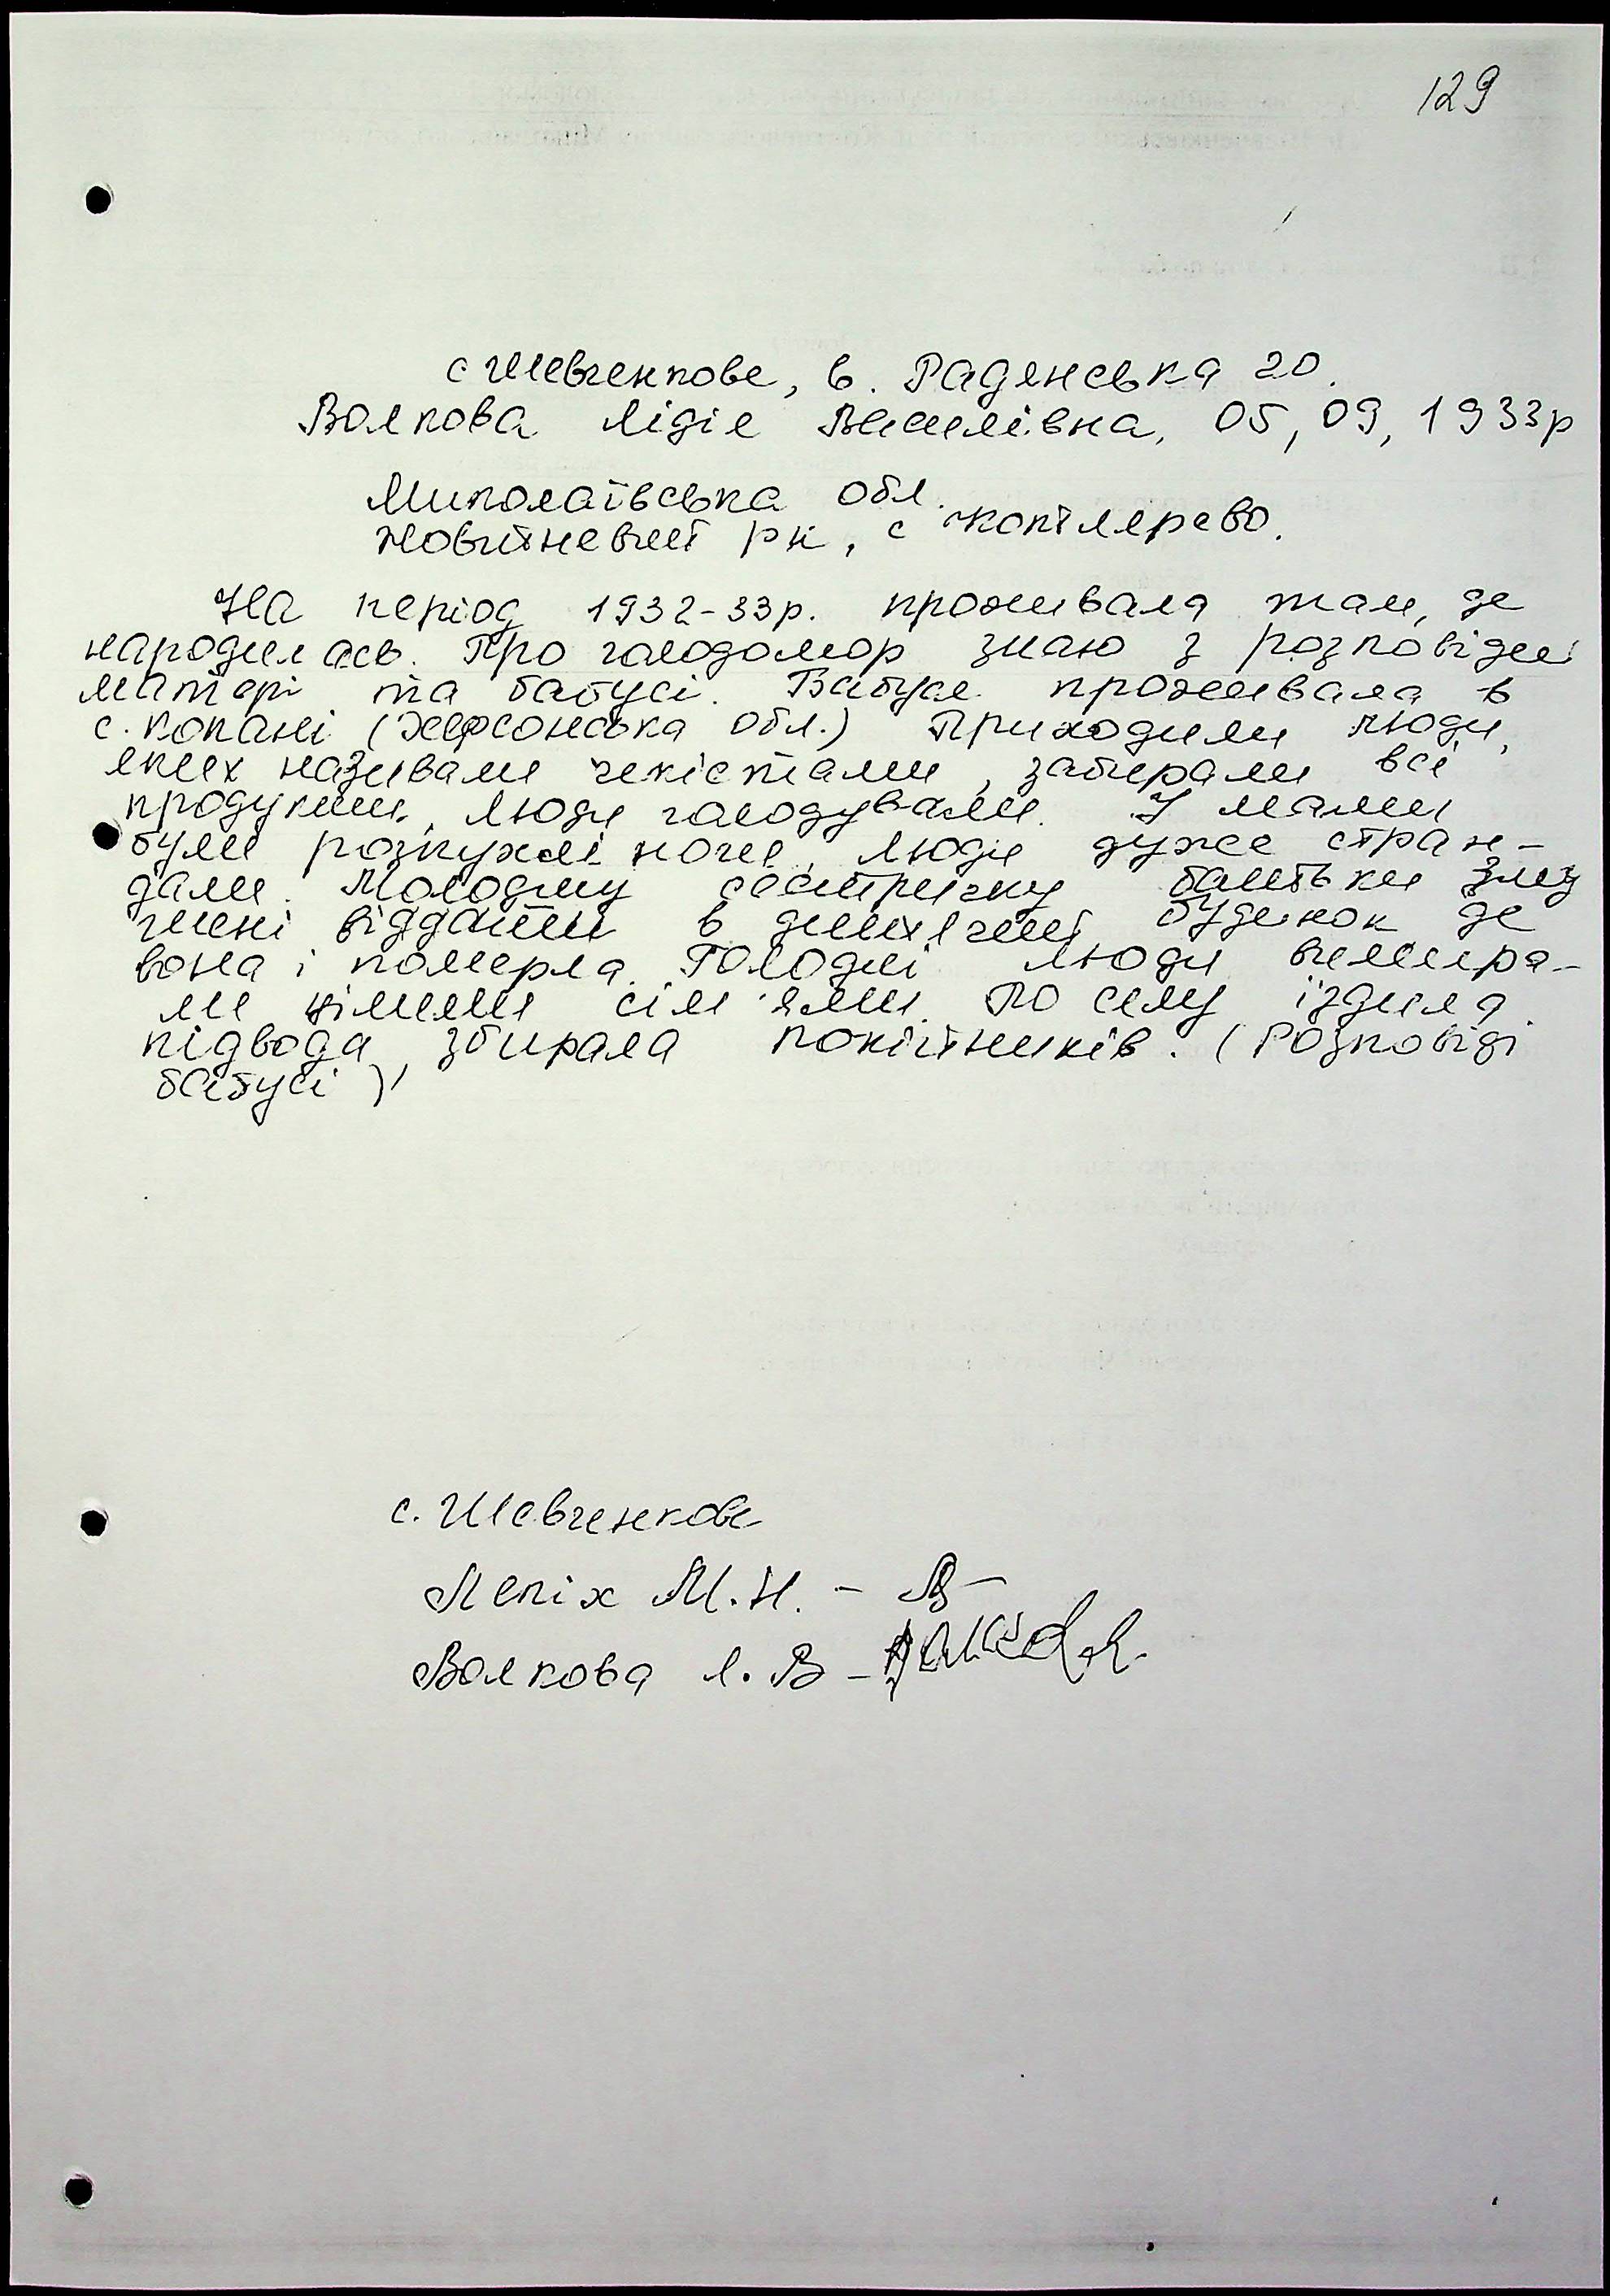 129
с Шевченкове, в. Радянська 20.
Волкова Лідія Василівна, 05, 09, 1933р
Миколаївська обл.
Жовтневий рн, с Котлярево.
На період 1932-33р. проживала там, де
народилась. Про голодомор знаю з розповідей
матері та бабусі. Бабуся проживала в
с. Копані (Херсонська обл.) Приходили люди,
яких називали чекістами, забирали всі
продукти, люди голодували. У мами
були розпухлі ноги, люди дуже страж-
дали. Молодшу сестричку батьки зму
шені віддати в дитячий будинок де
вона і померла. Голодні люди вимира-
ли цілими сім'ями. По селу їздила
підвода, збирала покійників. (Розповіді
бабусі)
с. Шевченкове
Лепіх М.Н. -
Волкова Л.В -